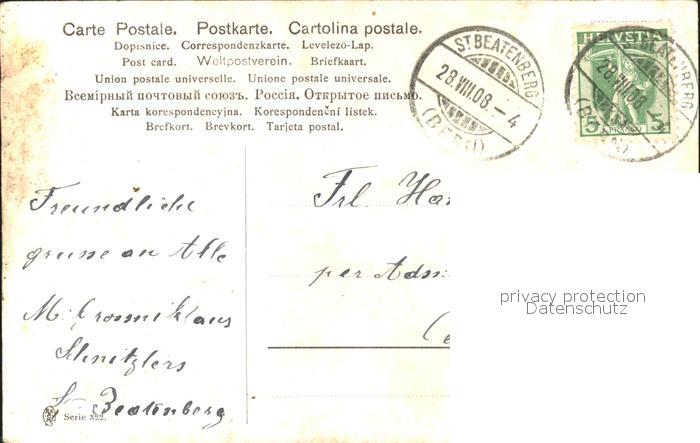 Carte Postale. Postkarte. Cartolina postale.
Dopisnice. Correspondenzkarte. Levelező-Lap.
Post card. Weltpostverein. Briefkaart.
Union postale universelle. Unione postale universale.
Всемірный почтовый союзъ. Россія. Открытое письмо.
Karta korespondencyjna. Korespondenční lístek.
Brefkort. Brevkort. Tarjeta postal.
ST. BEATENBERG
28.VIII.08.-4
(BERN)
HELVETIA
5 5
FRANCO
ST. BEATENBERG
28.VIII.08.-
Freundliche
grüsse an Alle
M. Grossniklaus
Schnitzlers
St. Beatenberg
Frl. Ha
per Adr
privacy protection
Datenschutz
Serie 322.